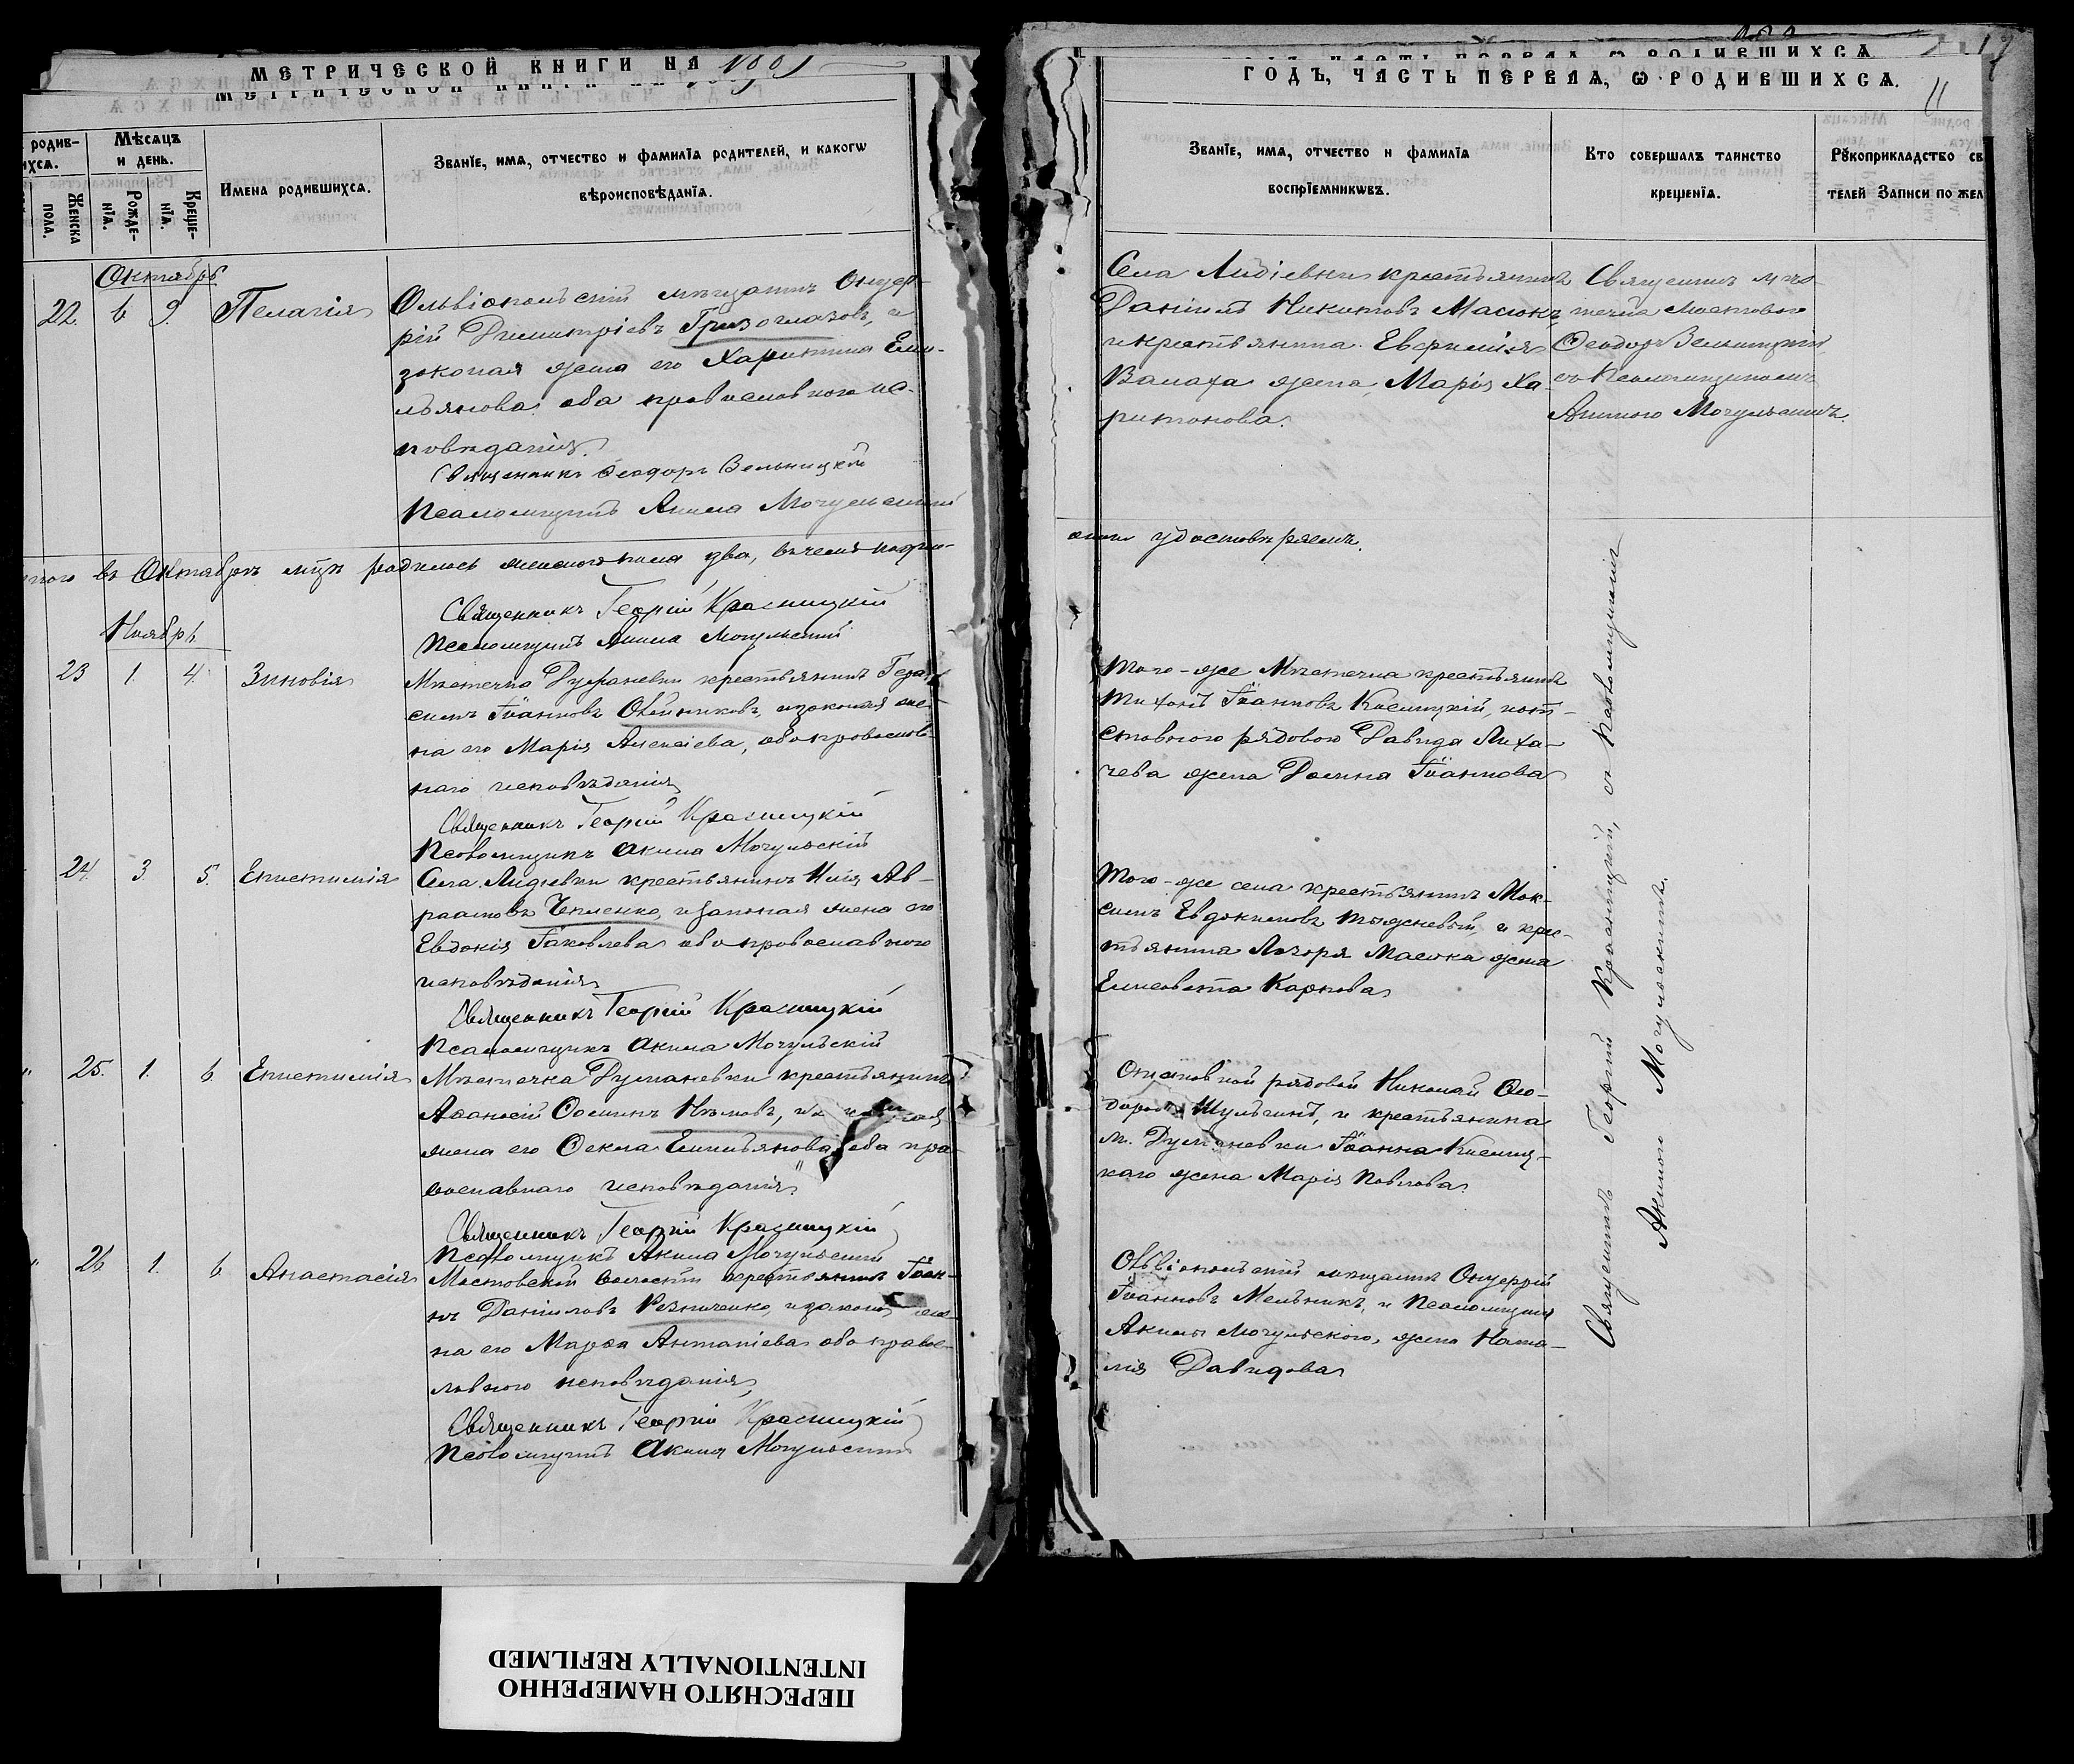 МЕТРИЧЕСКОЙ КНИГИ НА
родив-
ихсѧ.
Мѣсѧцъ
и день.
Женска
пола.
Рожде-
нїѧ.
Креще-
нїѧ.
Имена родившихсѧ.
Званїе, имѧ, отчество и фамилїѧ родителей, и какогѡ
вѣроисповѣданїѧ.
Октябрь
22. 6 9. Пелагія
Ольвіопольскій мѣщанинъ Онуф-
рій Димитріевъ Гризоглазовъ, и
законая жена его Харитина Еми-
льянова, оба православнаго ис-
повѣданія.
Священникъ Феодоръ Вельницкій
Псаломщикъ Акима Могульскій
въ Октябрѣ мцѣ родилось женскаго пола два, въ чемъ подпи-
Священникъ Георгій Красницкій
Псаломщикъ Акима Могульскій
Ноябрь
23 1 4. Зиновія
Мѣстечка Думаневки крестьянинъ Гера-
симъ Іоанновъ Олейниковъ, и законая же-
на его Марія Алексіева, оба православ-
наго исповѣданія
Священникъ Георгій Красницкій
Псаломщикъ Акима Могульскій
24. 3 5. Епистимія
Села Лидіевки крестьянинъ Илія Ав-
раамовъ Чепленко, и законая жена его
Евдокія Іаковлева оба православного
исповѣданія
Священникъ Георгій Красницкій
Псаломщикъ Акима Могульскій
25. 1. 6. Епистимія
Мѣстечка Думаневки крестьянинъ
Аѳанасій Ѳоминъ Нѣмовъ, и
жена его Ѳекла Емильянова оба пра-
вославнаго исповѣданія
Священникъ Георгій Красницкій
Псаломщикъ Акима Могульскій
26 1. 6 Анастасія
Мостовской волости крестьянинъ Іоан-
нъ Даніиловъ Резниченко, и законая же-
на его Марѳа Антапіева оба правос-
лавного исповѣданія
Священникъ Георгій Красницкій
Псаломщикъ Акима Могульскій
ГОДЪ, ЧАСТЬ ПЕРВАѦ, Ѡ РОДИВШИХСѦ.
11
Званїе, имѧ, отчество и фамилїѧ
воспрїемникѡвъ.
Кто совершалъ таинство
крещенїѧ.
Рꙋкоприкладство св
телей записи по жел
Села Лидіевки крестьянинъ
Даніилъ Никитовъ Масюкъ,
и крестьянина
Валаха жена, Марія Ха
ритонова.
Священникъ мѣс-
течка Мостового
Феодоръ Вельницкій,
съ Псаломщикомъ
Акимою Могульскимъ.
удостовѣряемъ.
Того-же Мѣстечка крестьянинъ
Тихонъ Іоанновъ Кислицкій,
рядового Давида Лиха-
чева жена Домна Іоаннова
Того-же села крестьянинъ Мак-
симъ Евдокимовъ и крес-
тьянина Масюка жена
Елисовета Карпова
рядовой Николай Ѳео-
доровъ Шульгинъ, и крестьянина
м. Думаневки Іоанна Кислиц-
каго жена Марія Павлова.
Ольвіопольскій мѣщанинъ Онуфрій
Іоанновъ Мельникъ, и Псаломщика
Акимы Могульского, жена Ната-
лія Давидова
Священникъ Георгій Красницкій, съ Псаломщикомъ
Акимою Могульскимъ.
ПЕРЕСНЯТО НАМЕРЕННО
INTENTIONALLY REFILMED